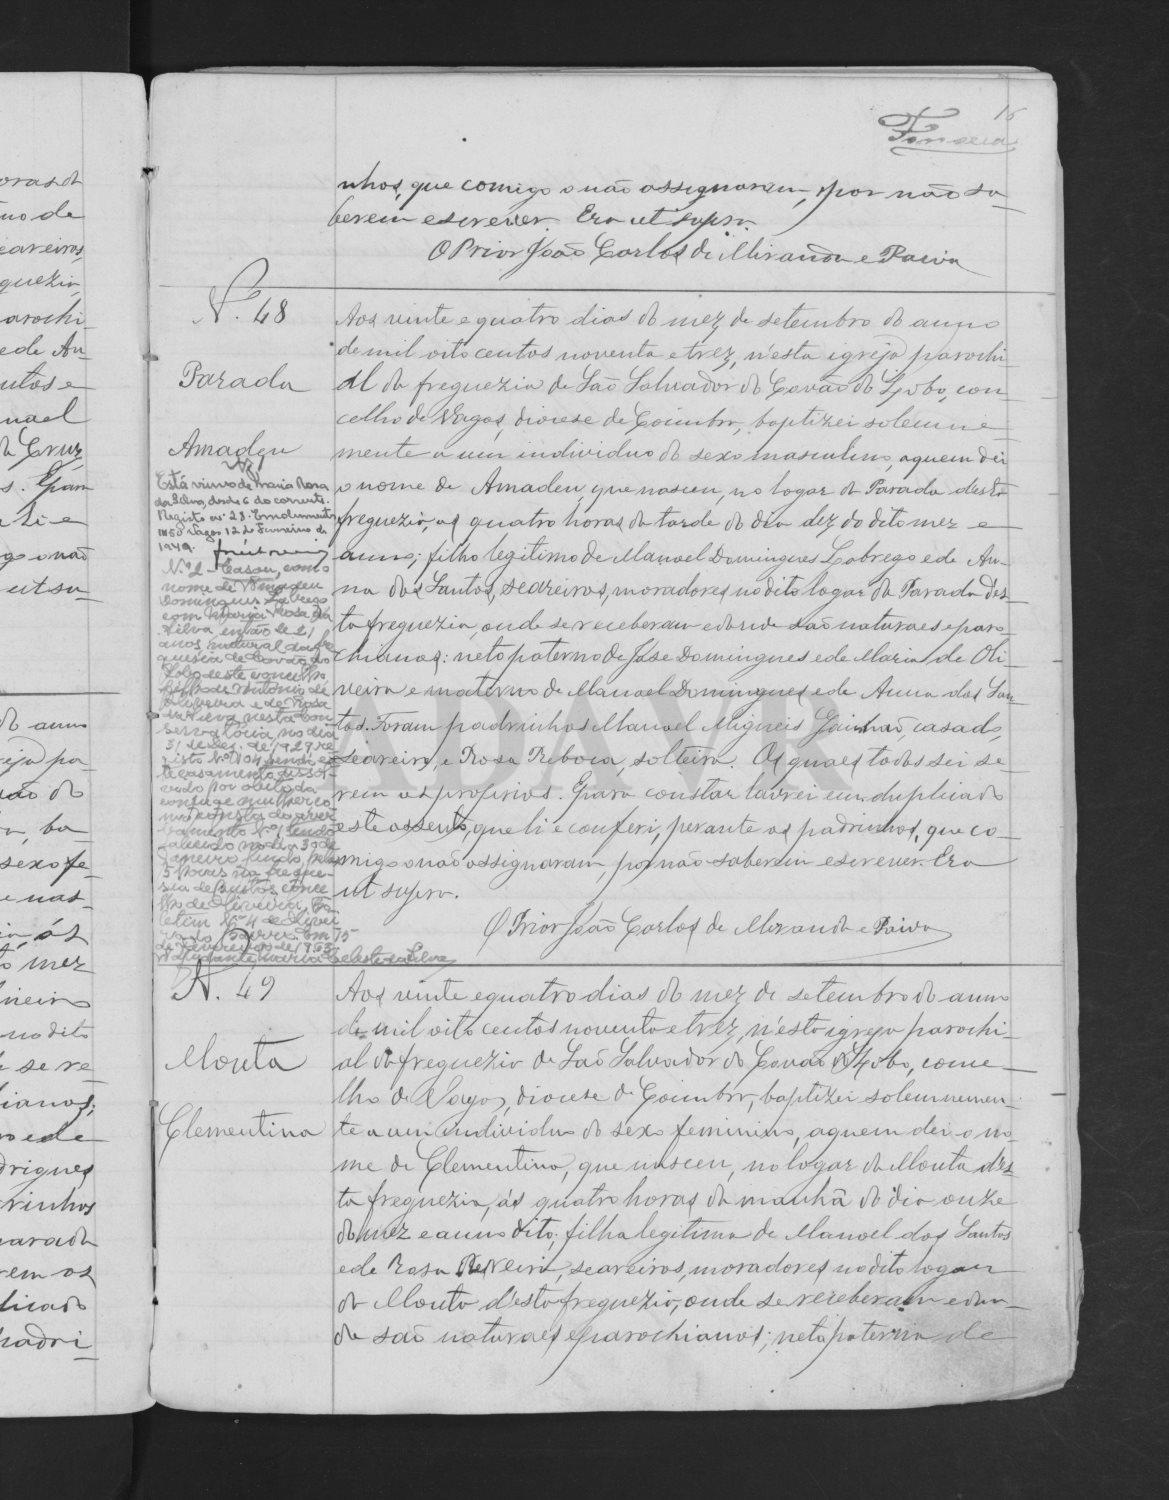 16
Fonseca
nhos, que comigo o não assignaram, por não sa-
berem escrever. Era ut supra.
O Prior João Carlos de Miranda e Paiva
N. 48
Parada
Amadeu
Está viuvo de Maria Rosa
da Silva, desde 6 do corrente.
Registo nº 28.
Vagos 12 de Fevereiro de
1949.
Nº 2 - Casou, com o
nome de Amadeu
Domingues Lobrego
com Maria Rosa da
Silva, então de 21
anos natural da fre
guesia de Covão do
Lobo deste concelho
filha de António de
Oliveira e de Rosa
da Silva nesta Con
servatória, no dia
31 de dez. de 1927, re
gisto Nº 104, sendo es
te casamento dissol-
vido por óbito da
conjuge mulher co
mo consta do aver
bamento Nº 1, tendo
falecido no dia 30 de
Janeiro findo, pelas
5 horas na fregue-
sia de Bustos, conce
lho de Oliveira, Bo
letim Nº 4 de Olivei
ra do Bairro. Em 15
de Fevereiro de 1963.
A ajudante, Maria Celeste da Silva
Aos vinte e quatro dias do mez de setembro do anno
de mil oito centos noventa e trez, n'esta igreja parochi-
al da freguezia de São Salvador do Covão do Lobo, con-
celho de Vagos, diocese de Coimbra, baptizei solemne-
mente a um individuo do sexo masculino, a quem dei
o nome de Amadeu, que nasceu, no logar da Parada desta
freguezia, ás quatro horas da tarde do dia dez do dito mez e
anno; filho legitimo de Manoel Domingues Lobrego e de An-
na dos Santos, seareiros, moradores no dito logar da Parada des-
ta freguezia, onde se receberam e donde são naturaes e paro-
chianos: neto paterno de José Domingues e de Maria de Oli-
veira e materno de Manoel Domingues e de Anna dos San
tos. Foram padrinhos Manoel Migueis casado,
seareiro, e Rosa Reboca, solteira. Os quaes todos sei se-
rem os proprios. E para constar lavrei em duplicado
este assento, que li e conferi, perante os padrinhos, que co-
migo o não assignaram, por não saberem escrever. Era
ut supra.
O Prior João Carlos de Miranda e Paiva
N. 49
Mouta
Clementina
Aos vinte e quatro dias do mez de setembro do anno
de mil oito centos noventa e trez, n'esta igreja parochi-
al da freguezia de São Salvador do Covão do Lobo, conce-
lho de Vagos, diocese de Coimbra, baptizei solemnemen-
te a um individuo do sexo feminino, a quem dei o no-
me de Clementina, que nasceu, no logar da Mouta des-
ta freguezia, ás quatro horas da manhã do dia onze
do mez e anno dito; filha legitima de Manoel dos Santos
e de Rosa seareiros, moradores no dito logar
da Mouta d'esta freguezia, onde se receberam e don-
de são naturaes e parochianos; neta paterna de
ADAVR